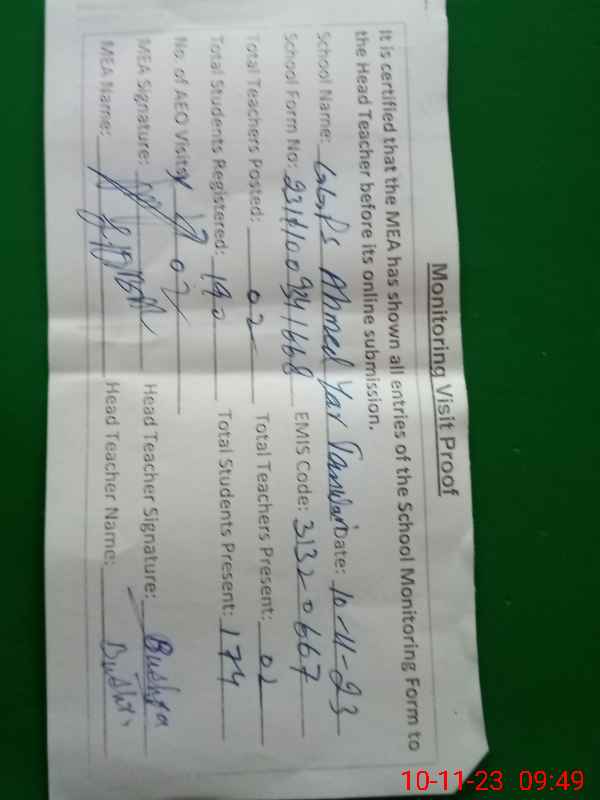 Monitoring Visit Proof
It is certified that the MEA has shown all entries of the School Monitoring Form to
the Head Teacher before its online submission.
School Name: GGPS Ahmed Yar Date: 10-11-23
School Form No: EMIS Code: 31320667
Total Teachers Posted: 02 Total Teachers Present: 02
Total Students Registered: 190 Total Students Present: 174
No. of AEO Visits: 02
MEA Signature: Head Teacher Signature: Bushra
MEA Name: Head Teacher Name: Bushra
10-11-23 09:49